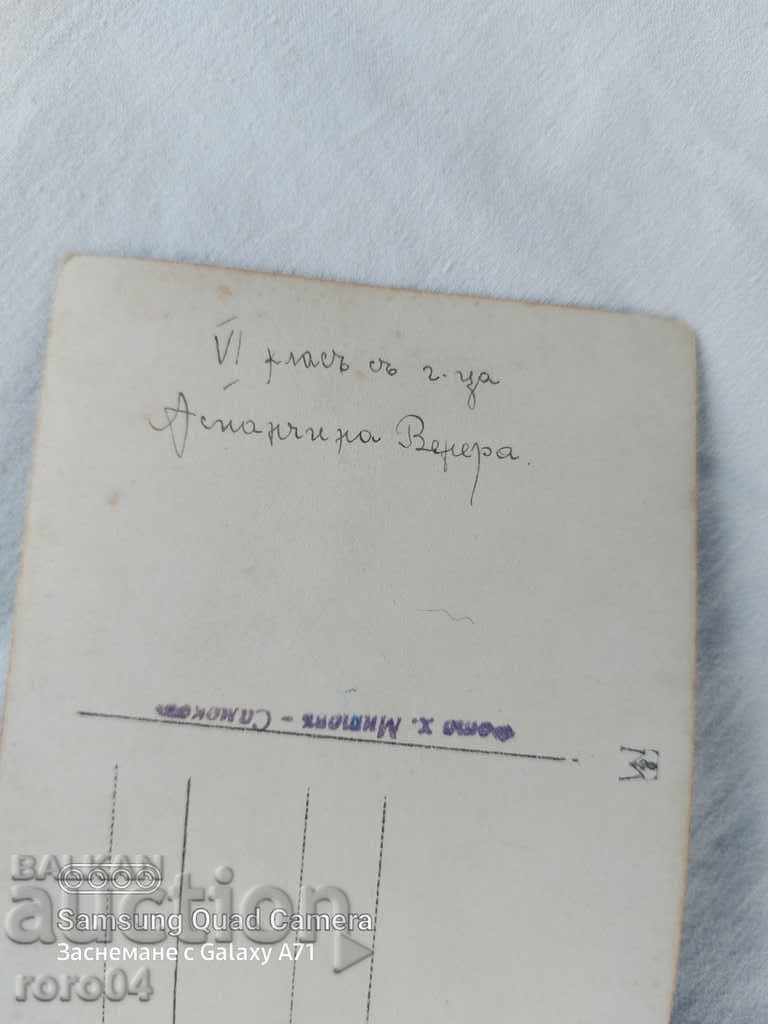 VI класъ съ г. ца
Аспарчина Венера.
Фото х. Митовъ - Самоковъ
BALKAN
auction
Samsung Quad Camera
Заснемане с Galaxy A71
roro04